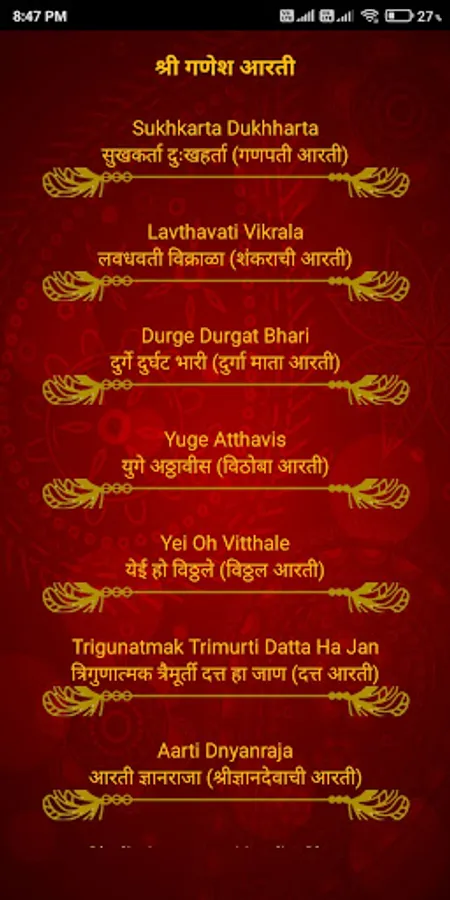 8:47 PM 27%
श्री गणेश आरती
Sukhkarta Dukhharta
सुखकर्ता दुःखहर्ता (गणपती आरती)
Lavthavati Vikrala
लवथवती विक्राळा (शंकराची आरती)
Durge Durgat Bhari
दुर्गे दुर्घट भारी (दुर्गा माता आरती)
Yuge Atthavis
युगे अठ्ठावीस (विठोबा आरती)
Yei Oh Vitthale
येई हो विठ्ठले (विठ्ठल आरती)
Trigunatmak Trimurti Datta Ha Jan
त्रिगुणात्मक त्रैमूर्ती दत्त हा जाण (दत्त आरती)
Aarti Dnyanraja
आरती ज्ञानराजा (श्रीज्ञानदेवाची आरती)